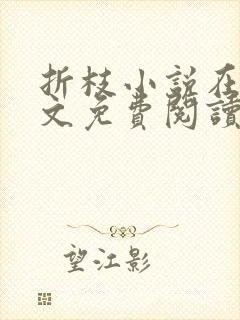 折枝小说在
文免費閱讀
望江影